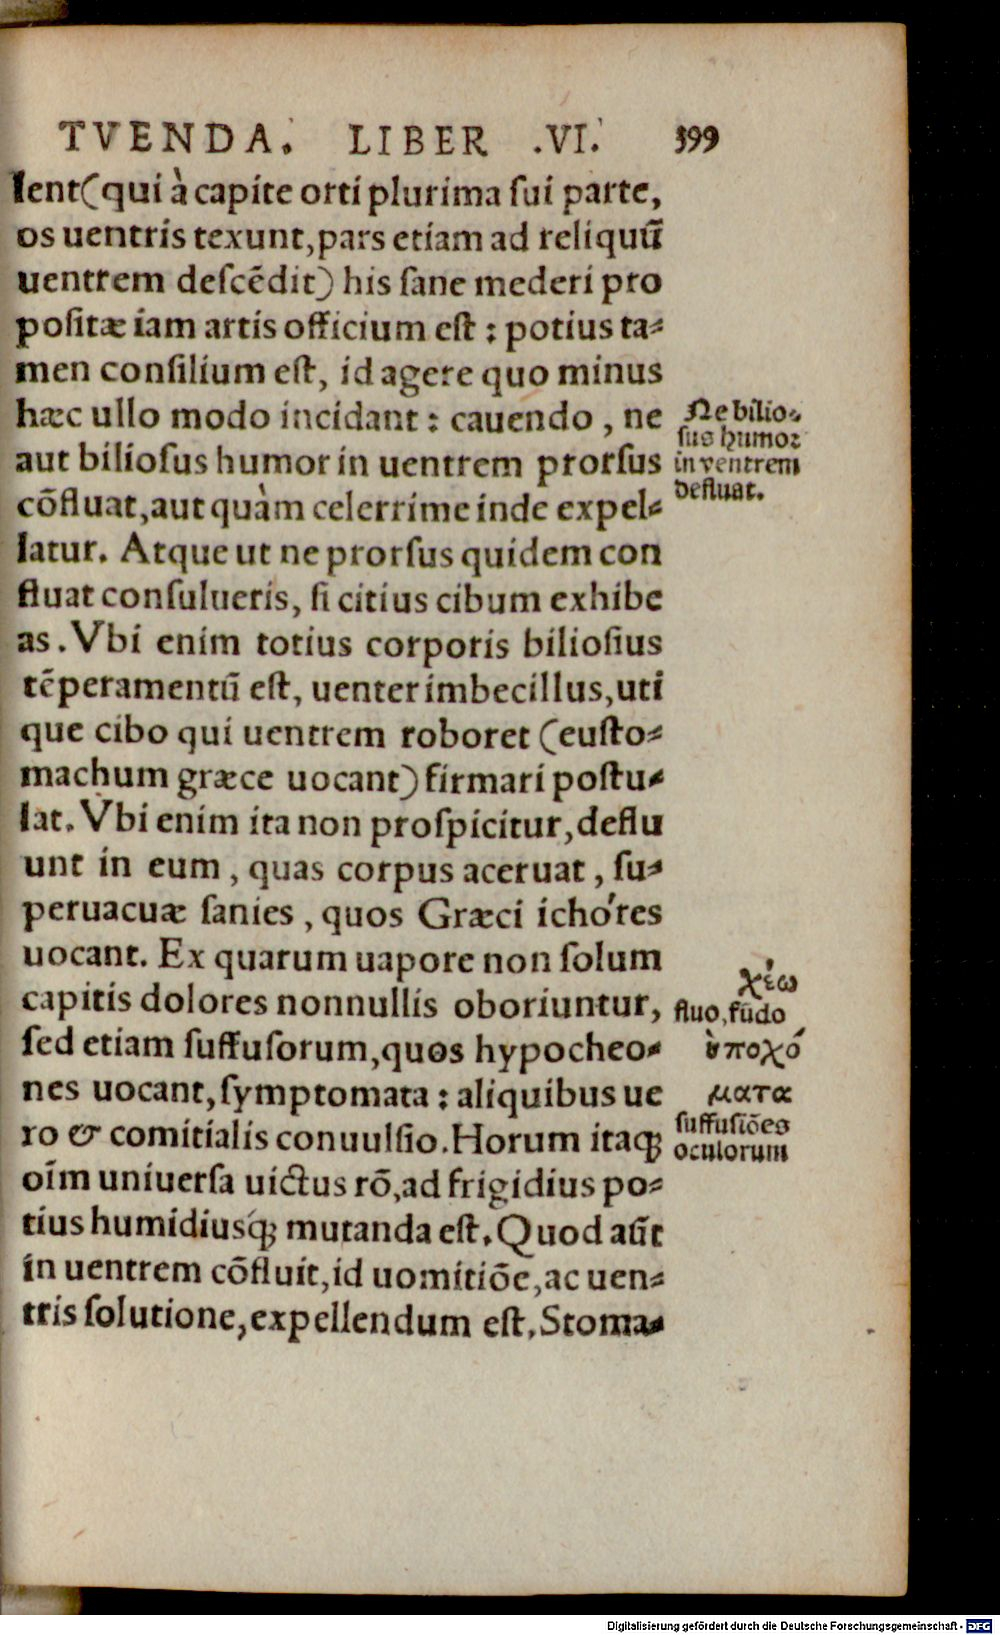 TVENDA. LIBER .VI. 399
lent(qui à capite orti plurima ſui parte,
os uentris texunt, pars etiam ad reliquū
uentrem deſcēdit) his ſane mederi pro
poſitæ iam artis officium eſt : potius ta-
men conſilium eſt, id agere quo minus
hæc ullo modo incidant : cauendo , ne
aut bilioſus humor in uentrem prorſus
cōfluat, aut quàm celerrime inde expel-
latur. Atque ut ne prorſus quidem con
fluat conſulueris, ſi citius cibum exhibe
as . Vbi enim totius corporis bilioſius
tēperamentū eſt, uenter imbecillus, uti
que cibo qui uentrem roboret (euſto-
machum græce uocant) firmari poſtu-
lat. Vbi enim ita non proſpicitur, deflu
unt in eum , quas corpus aceruat , ſu-
peruacuæ ſanies , quos Græci ichóres
uocant. Ex quarum uapore non ſolum
capitis dolores nonnullis oboriuntur,
ſed etiam ſuffuſorum, quos hypocheo-
nes uocant, ſymptomata : aliquibus ue
ro & comitialis conuulſio. Horum itaq;
oīm uniuerſa uictus rō, ad frigidius po-
tius humidiusq́; mutanda eſt. Quod aūt
in uentrem cōfluit, id uomitiōe, ac uen-
tris ſolutione, expellendum eſt. Stoma-
Ne bilio-
ſus humor
in ventrem
defluat.
χέω
fluo, fūdo
ὑποχό
ματα
ſuffuſiōes
oculorum
Digitalisierung gefördert durch die Deutsche Forschungsgemeinschaft - DFG